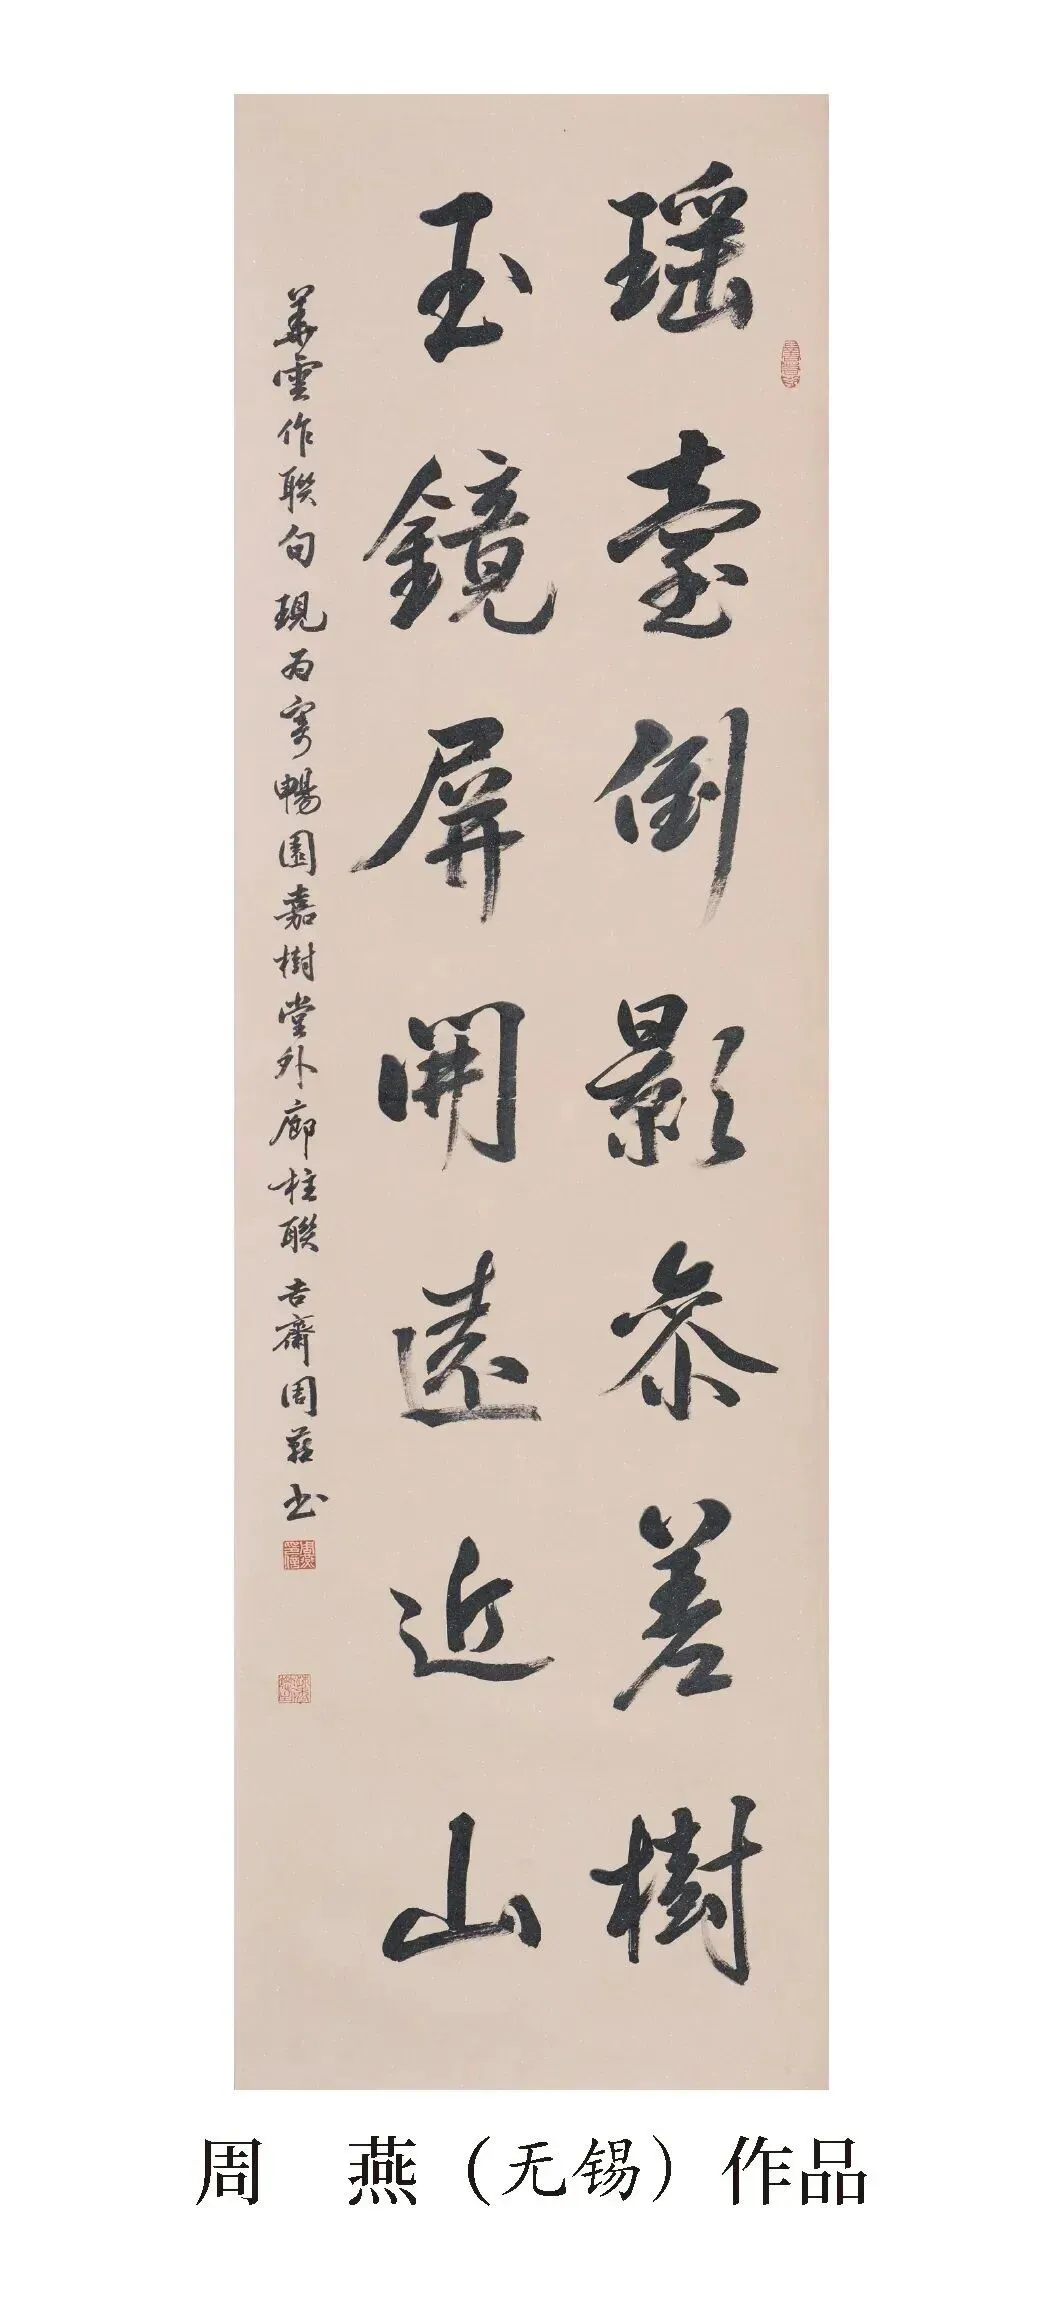 瑶臺倒影参差樹
玉鏡屏開遠近山
華雲作聯句現為寄暢園嘉樹堂外廊柱聯吉齋周燕书
周 燕（无锡）作品